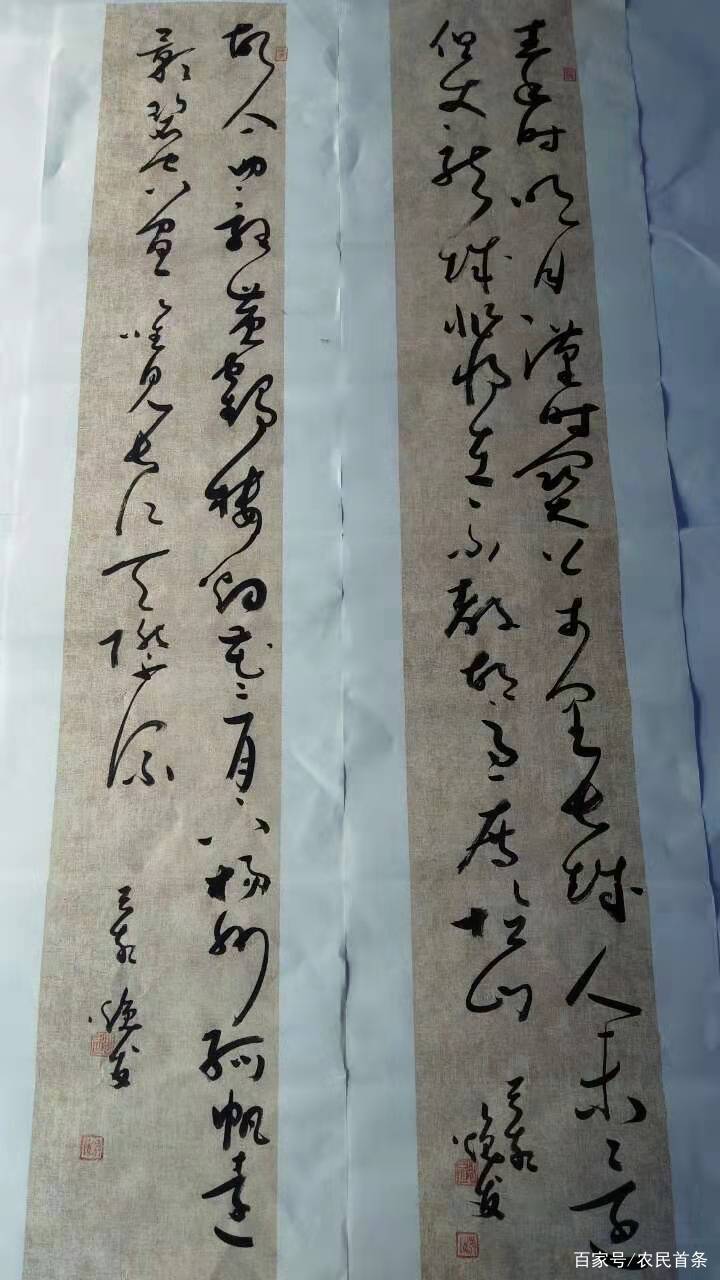 秦时明月漢时関万里长征人未还
但使龙城飛将在不教胡马度阴山
故人西辞黄鹤楼烟花三月下揚州孤帆遠
影碧空尽唯见长江天際流
百家号/农民首条